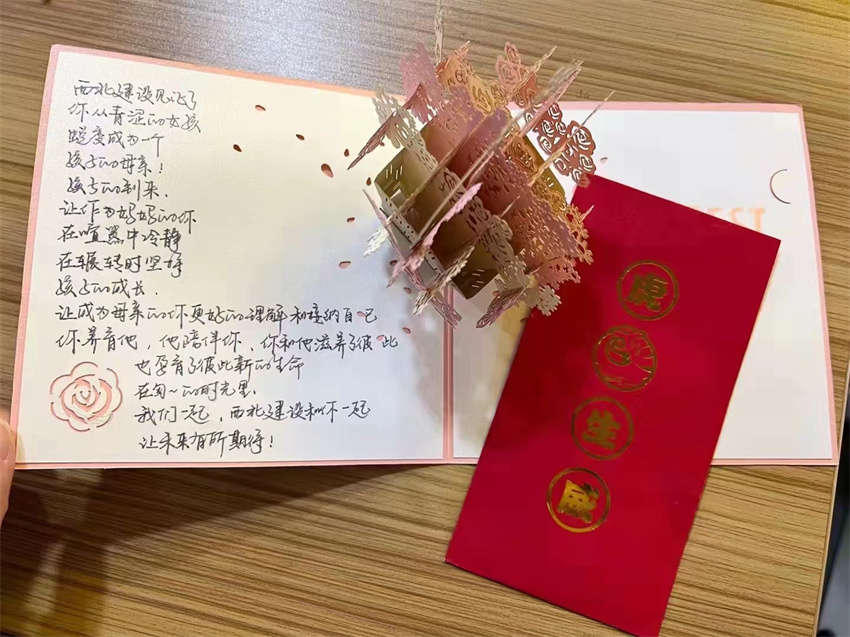 西北建设见证了
你从青涩的女孩
蜕变成为一个
孩子的母亲！
孩子的到来，
让作为妈妈的你
在喧嚣中冷静
在辗转时坚持
孩子的成长，
让成为母亲的你更好的理解和接纳自己
你养育他，他陪伴你，你和他滋养了彼此
也孕育了彼此新的生命
在每一的时光里，
我们一起，西北建设和你一起
让未来有所期待！
EST
虎
生
威